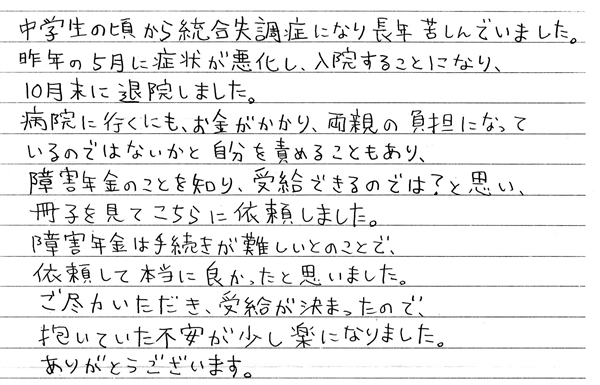 中学生の頃から統合失調症になり長年苦しんでいました。
昨年の5月に症状が悪化し、入院することになり、
10月末に退院しました。
病院に行くにも、お金がかかり、両親の負担になって
いるのではないかと自分を責めることもあり、
障害年金のことを知り、受給できるのでは?と思い、
冊子を見てこちらに依頼しました。
障害年金は手続きが難しいとのことで、
依頼して本当に良かったと思いました。
ご尽力いただき、受給が決まったので、
抱いていた不安が少し楽になりました。
ありがとうございます。